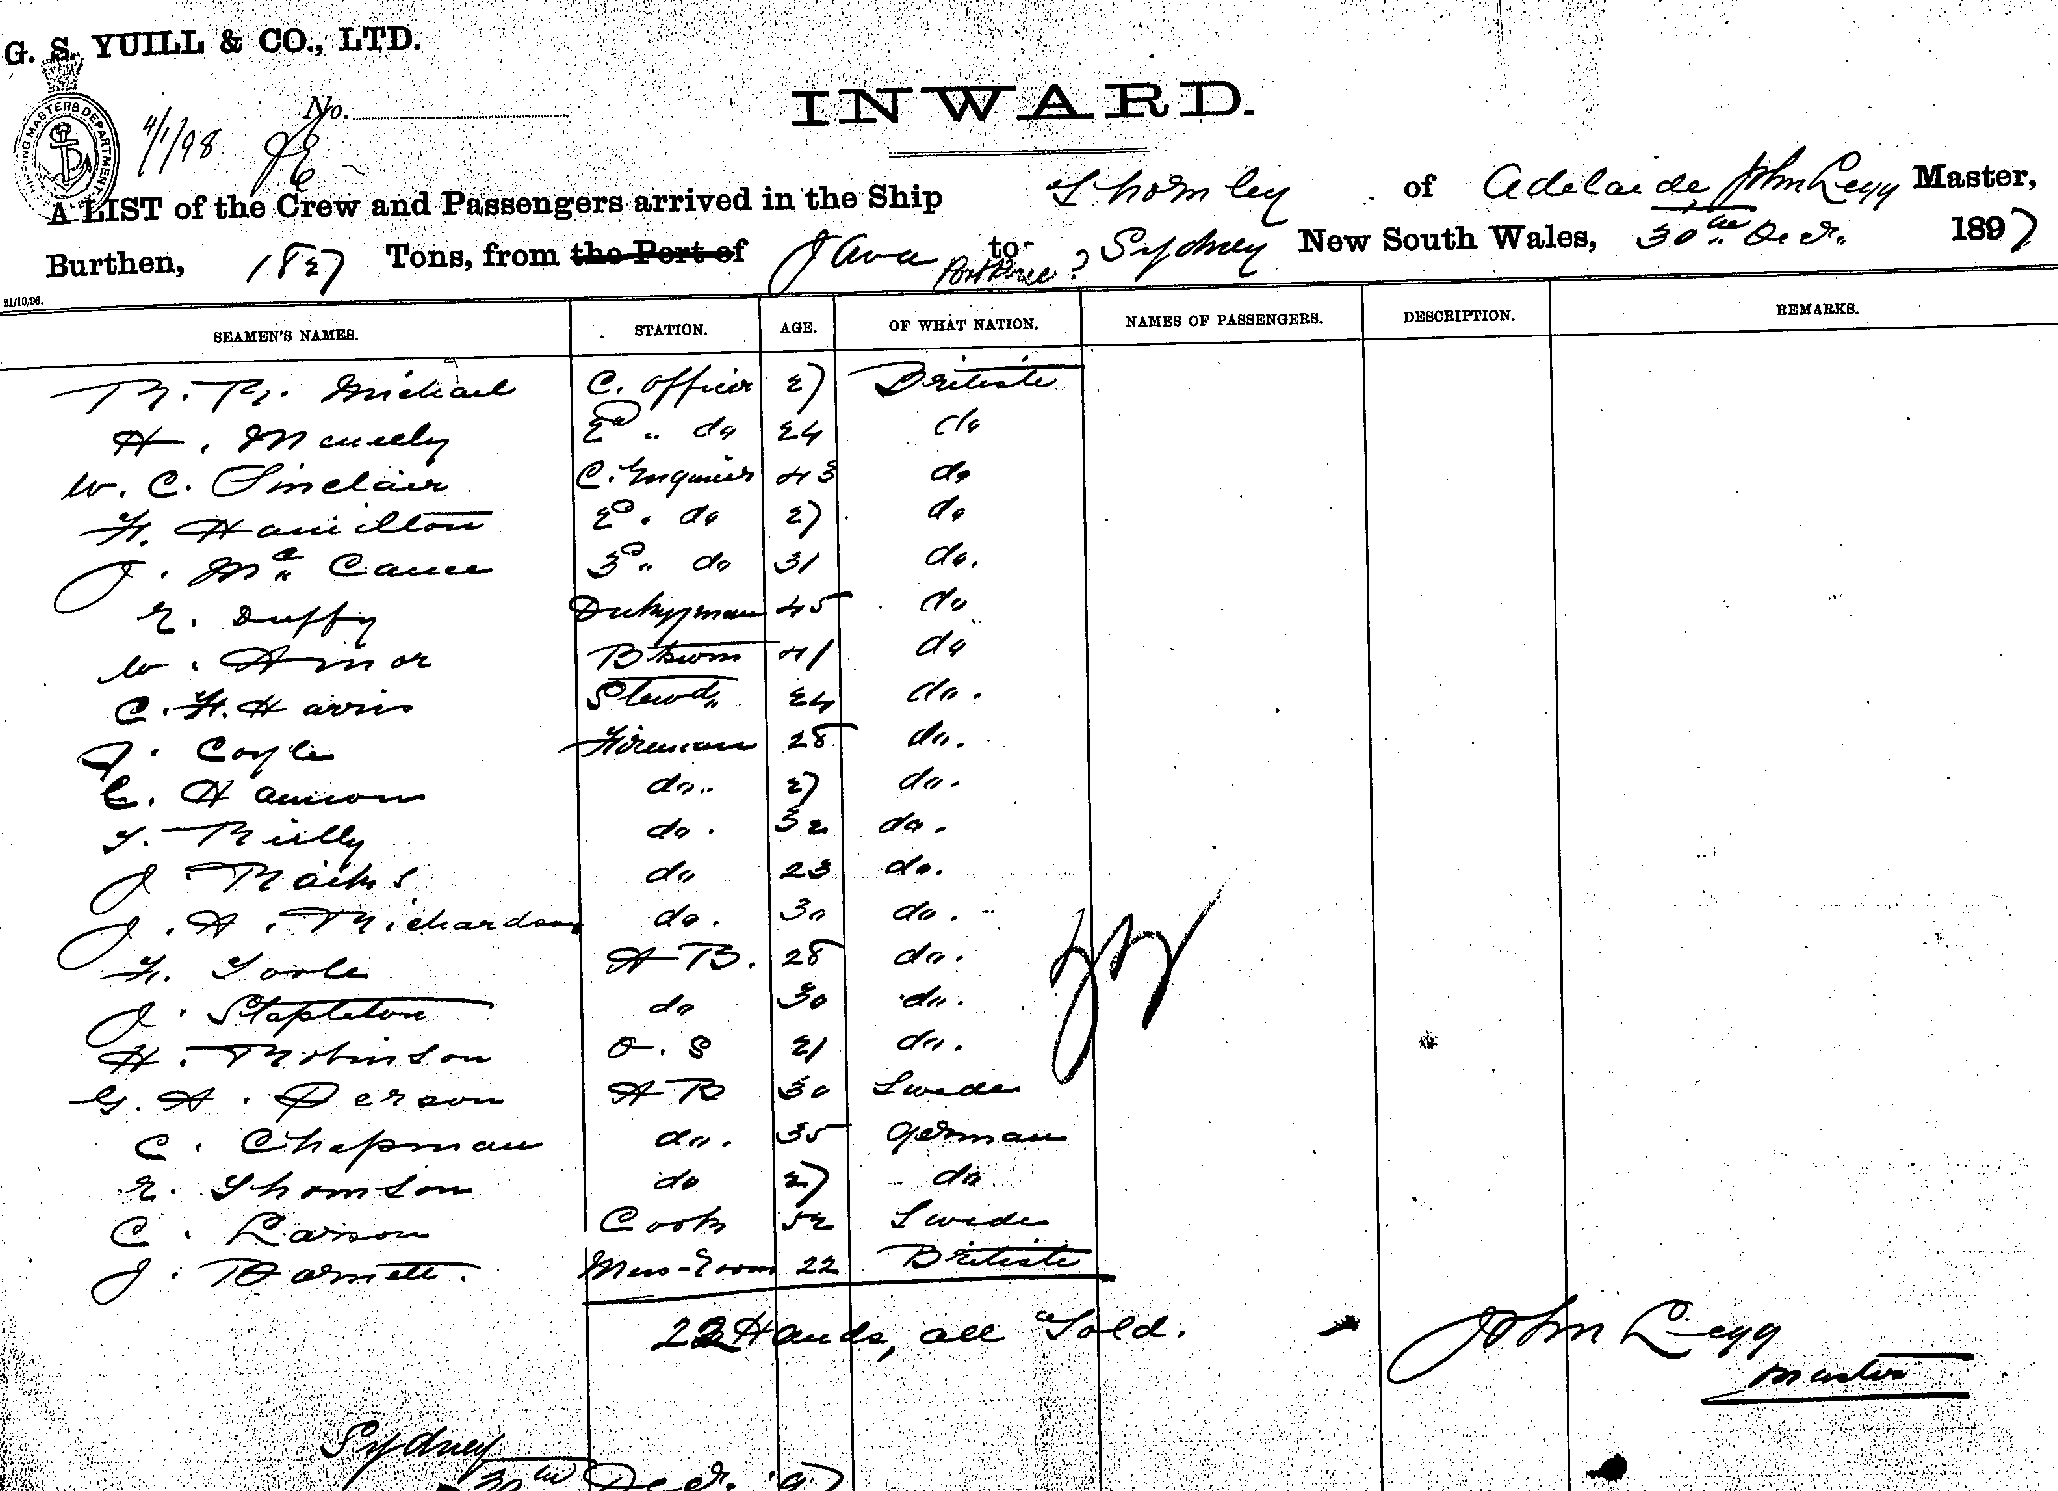 G. S. YUILL & CO., LTD.
SHIPPING MASTERS DEPARTMENT
4/1/98
No.
INWARD.
A LIST of the Crew and Passengers arrived in the Ship Thornley of Adelaide, John Legg Master,
Burthen, 1827 Tons, from the Port of Java to Port Pirie ? Sydney New South Wales, 30th Decr. 1897
21/10,96.
SEAMEN'S NAMES. STATION. AGE. OF WHAT NATION. NAMES OF PASSENGERS. DESCRIPTION. REMARKS.
R. R. Michael C. Officer 27 British
H. 2d " do 24 do
W. C. Sinclair C. Engineer 43 do
F. Hamilton 2d . do 27 do
J. Mc Cance 3d " do 31 do.
E. Duffy Dnkyman 45 do
W. Amor Btswn 41 do
C. F. Harris Stewd. 24 do.
J. Coyle Fireman 28 do.
C. Hannon do.. 27 do.
T. Rielly do. 32 do.
J. do 23 do.
J. A. Richardson do. 30 do.
F. Toole AB. 28 do.
J. Stapleton do 30 do.
H. Robinson O.S 21 do.
G. A. Person AB 30 Swede
C. Chapman do. 35 German
E. Thomson do 27 do
C. Larson Cook 52 Swede
J. Barnett. Mess-room 22 British
22 Hands, all Told.
John Legg
Master
Sydney
30th Decr. 97